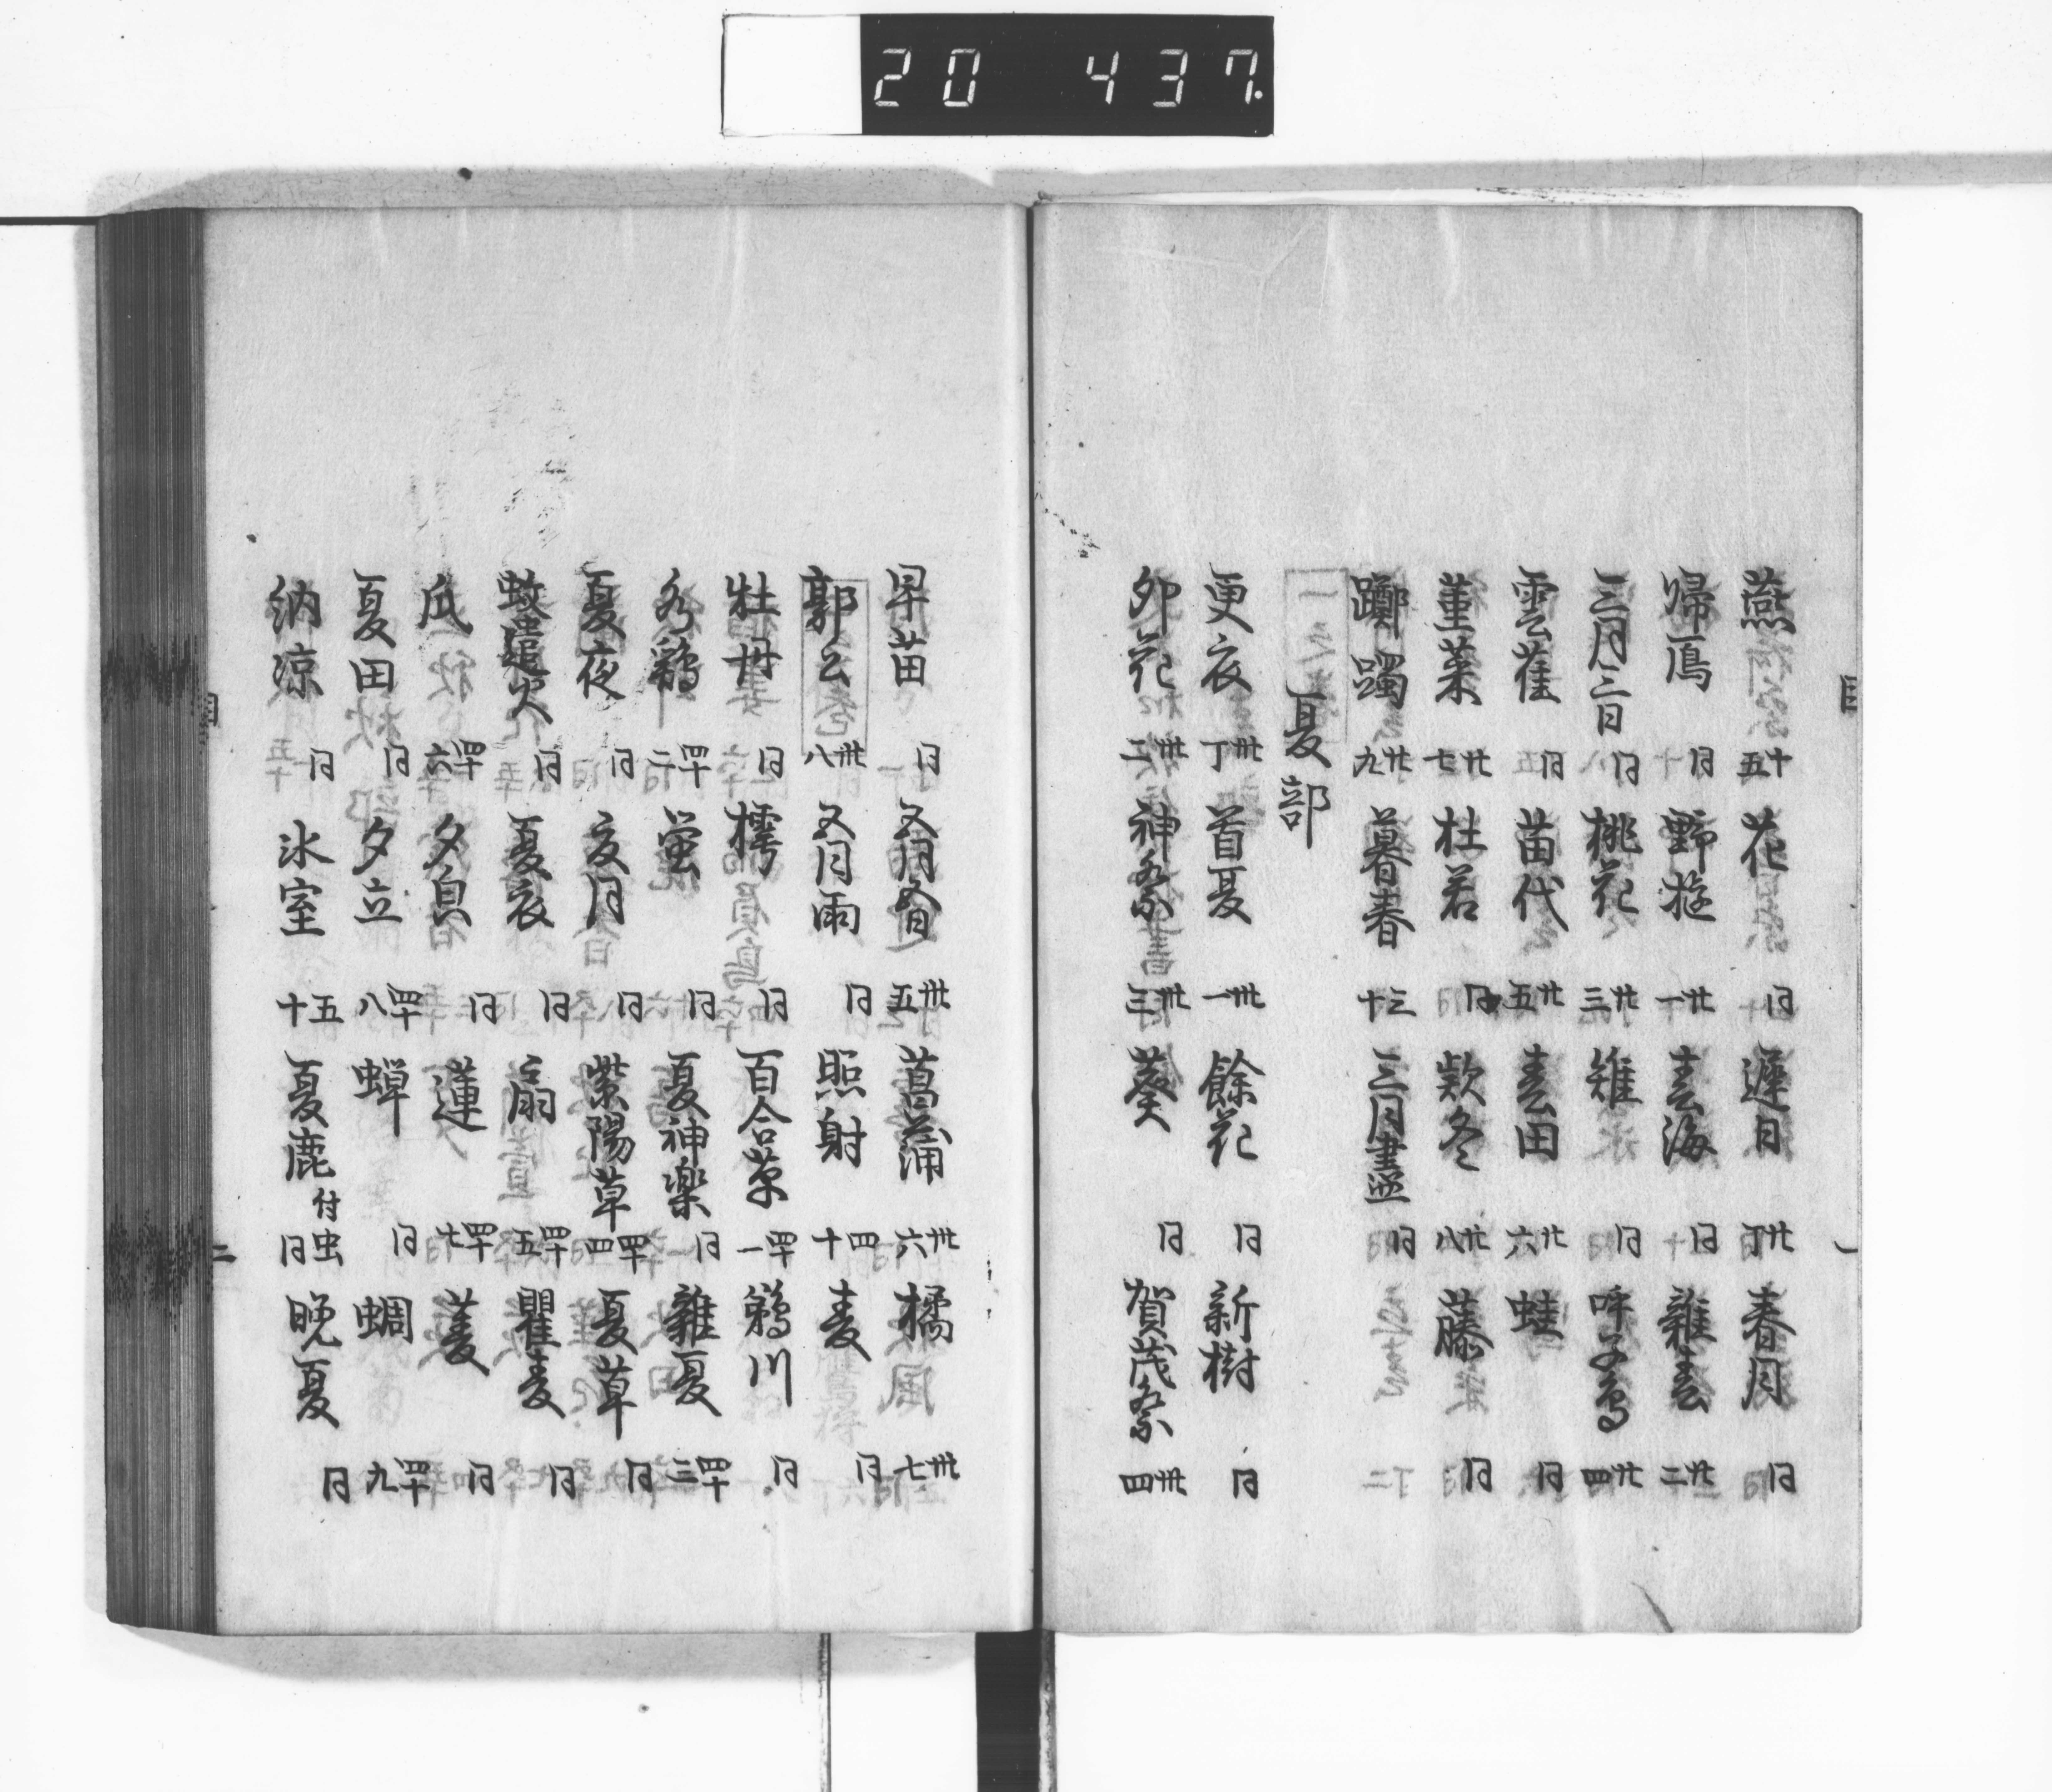 20 437.
燕 十五 花 同 遅日 廿丁 春月 同
帰鴈 同 野遊 廿一 春海 同 雑春 廿二
三月三日 同 桃花 廿三 雉 同 呼子鳥 廿四
雲雀 同 苗代 廿五 春田 廿六 蛙 同
菫菜 廿七 杜若 同 欵冬 廿八 藤 同
躑躅 廿九 暮春 三十 三月盡 同
夏部
更衣 卅丁 首夏 卅一 餘花 同 新樹 同
卯花 卅二 神祭 卅三 葵 同 賀茂祭 卅四
早苗 同 五月五日 卅五 菖蒲 卅六 橘 卅七
郭公 卅八 五月雨 同 照射 四十 麦 同
牡丹 同 樗 同 百合草 四十一 鵜川 同
水鶏 四十二 蛍 同 夏神楽 同 雑夏 四十三
夏夜 同 夏月 同 紫陽草 四十四 夏草 同
蚊遣火 同 夏衣 同 扇 四十五 瞿麦 同
瓜 四十六 夕皃 同 蓮 四十七 菱 同
夏田 同 夕立 四十八 蝉 同 蜩 四十九
納涼 同 氷室 五十 夏鹿 付虫 同 晩夏 同
目 一
目 二